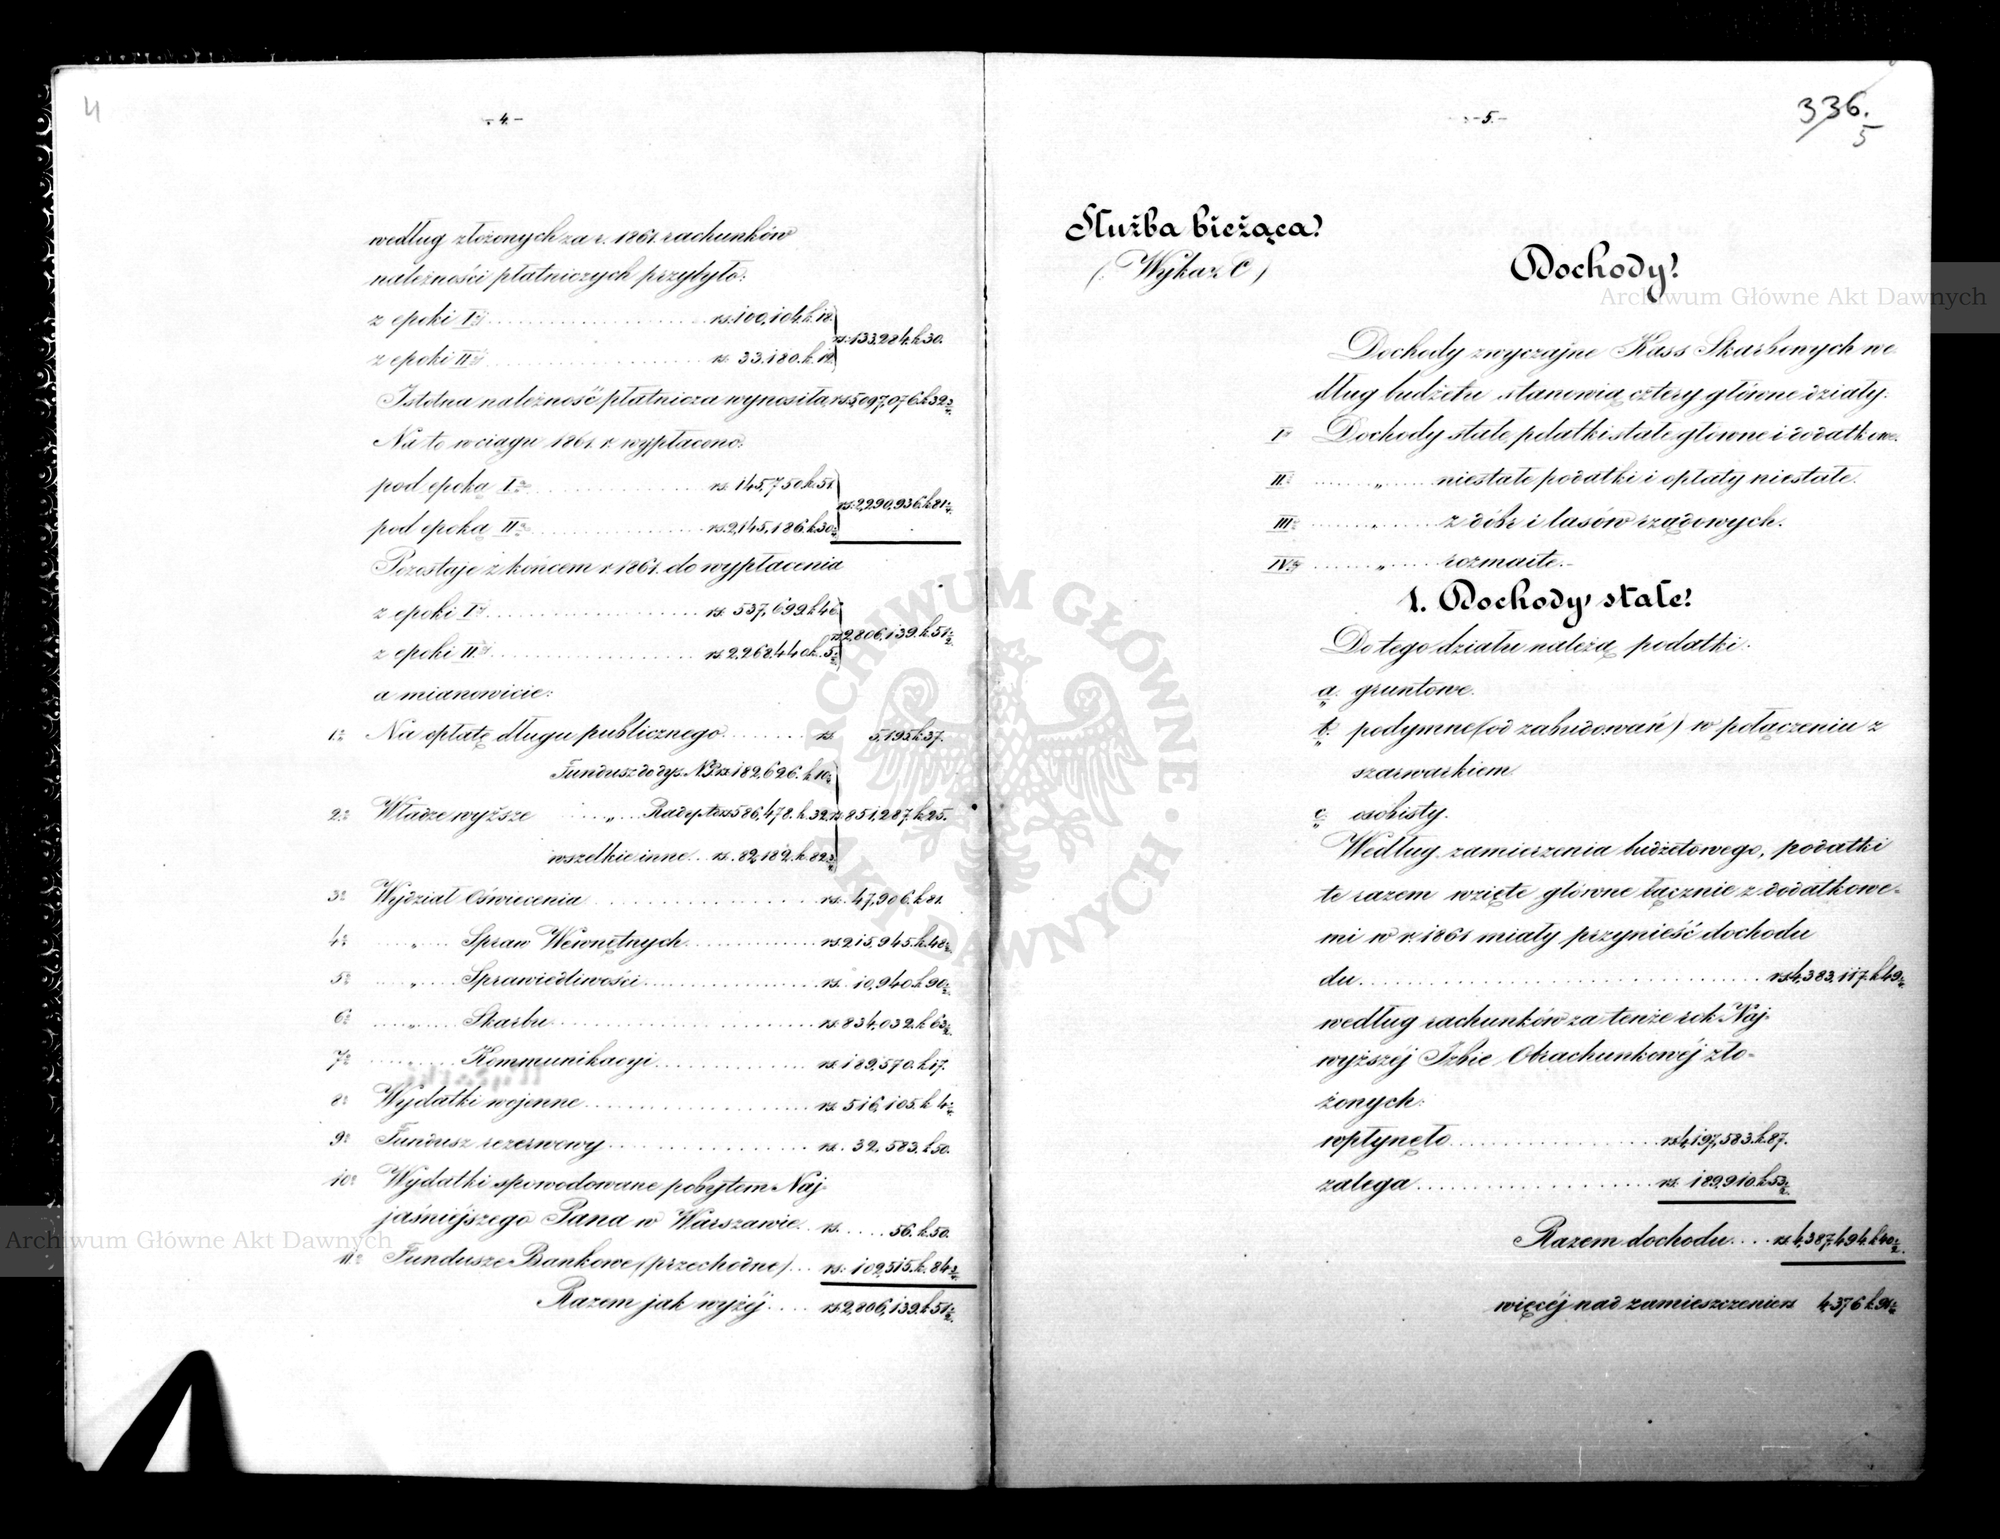 4
- 4. -
według złożonych za r. 1861. rachunków
należności płatniczych przybyło:
z epoki I éj rs. 100,104. k. 18.
rs. 133,284. k. 30.
z epoki II éj rs. 33.180. k. 12.
Istotna należność płatnicza wynosiła, rs. 5,097,076. k. 32
Na to w ciągu 1861. r. wypłacono:
pod epoką I ą rs. 145,750. k. 51.
rs. 2,290,936. k. 81
pod epoką II ą rs. 2,145,186. k. 30
Pozostaje z końcem r. 1861. do wypłacenia
z epoki I éj rs. 537,699. k. 46.
rs. 2,806,139. k. 51
z epoki II éj rs. 2,268,440. k. 5
a mianowicie:
1. Na opłatę długu publicznego rs. 5,195. k. 37.
Fundusz do dys. N. P. rs. 182,626. k. 10
2. Władze wyższe „ Rady Ad. rs. 586,478. k. 32. rs. 851,287. k. 25.
wszelkie inne rs. 82,182. k. 82
3. Wydział Oświecenia rs. 47,906. k. 81.
4. „ Spraw Wewnętnych rs. 215,945. k. 48
5. „ Sprawiedliwości rs. 10,940. k. 90
6. „ Skarbu rs. 834,032. k. 63
7. „ Kommunikacyi rs. 189,570. k. 17.
8. Wydatki wojenne rs. 516,105. k. 4
9. Fundusz rezerwowy rs. 32,583. k. 50.
10. Wydatki spowodowane pobytem Naj
jaśniejszego Pana w Warszawie rs. 56. k. 50.
11. Fundusze Bankowe (przechodne) rs. 102,515. k. 84
Razem jak wyżéj rs. 2,806,139. k. 51
- 5. -
336.
5
Służba bieżąca.
(: Wykaz C )
Dochody.
Dochody zwyczajne Kass Skarbowych we-
dług budżetu stanowią cztery główne działy:
I. Dochody stałe, podatki stałe główne i dodatkowe.
II. „ niestałe podatki i opłaty niestałe.
III. „ z dóbr i lasów rządowych.
IV. „ rozmaite.-
1. Dochody stałe.
Do tego działu należą podatki:
a. gruntowe.
b. podymne (od zabudowań) w połączeniu z
szarwarkiem
c. osobisty.
Według zamierzenia budżetowego, podatki
te razem wzięte główne łącznie z dodatkowe-
mi w r. 1861 miały przynieść dochodu
du rs. 4,383,117. k. 49
według rachunków za tenże rok Naj-
wyższéj Izbie Obrachunkowéj zło-
żonych:
wpłynęło rs. 4,197,583. k. 87.
zalega rs. 189,910. k. 53
Razem dochodu rs. 4,387,494. k. 40
więcéj nad zamieszczenie rs. 4,376 k. 91
Archiwum Główne Akt Dawnych
ARCHIWUM GŁÓWNE AKT DAWNYCH
Archiwum Główne Akt Dawnych